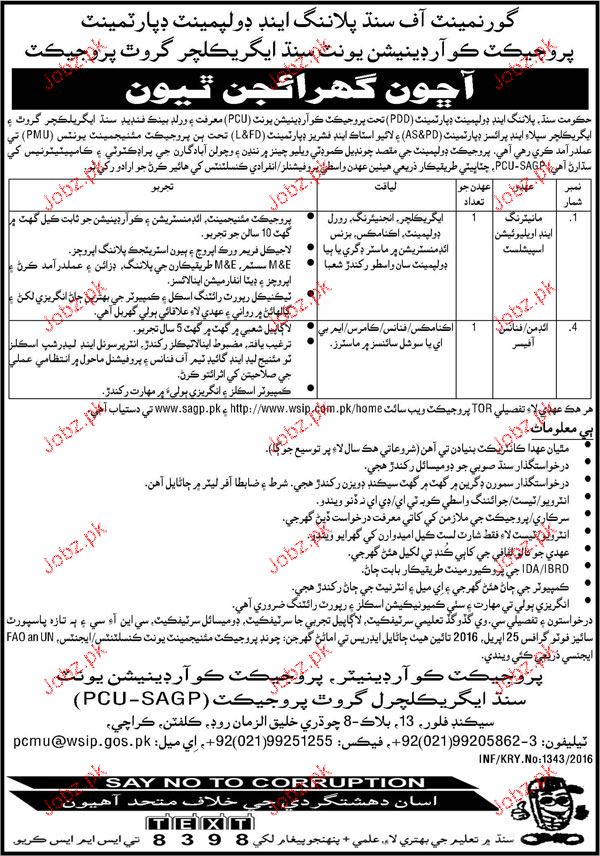 گورنمينٽ آف سنڌ پلاننگ اينڊ ڊولپمينٽ ڊپارٽمينٽ
پروجيڪٽ ڪوآرڊينيشن يونٽ سنڌ ايگريڪلچر گروٿ پروجيڪٽ
آڇون گهرائجن ٿيون
حڪومت سنڌ، پلاننگ اينڊ ڊولپمينٽ ڊپارٽمينٽ (PDD) تحت پروجيڪٽ ڪوآرڊينيشن يونٽ (PCU) معرفت ۽ ورلڊ بينڪ فنڊيڊ سنڌ ايگريلڪلچر گروٿ ۽
ايگريڪلچر سپلاءِ اينڊ پرائسز ڊپارٽمينٽ (AS&PD) ۽ لائيو اسٽاڪ اينڊ فشريز ڊپارٽمينٽ (L&FD) تحت ٻن پروجيڪٽ مئنيجمينٽ يونٽس (PMU) تي
عملدرآمد ڪري رهي آهي. پروجيڪٽ ڊولپمينٽ جي مقصد چونڊيل ڪموڊٽي ويليو چينز ۾ ننڍن ۽ وچولن آبادگارن جي پراڊڪٽوٽي ۽ ڪامپيٽيٽونيس کي
سڌارڻ آهي. PCU-SAGP، چٽاڀيٽي طريقيڪار ذريعي هيٺين عهدن واسطي پروفيشنلز/انفرادي ڪنسلٽنٽس کي هائير ڪرڻ جو ارادو رکي ٿو.
نمبر شمار
عهدو
عهدن جو تعداد
لياقت
تجربو
1.
مانيٽرنگ اينڊ اويليوئيشن اسپيشلسٽ
1
ايگريڪلچر، انجنيئرنگ، رورل ڊولپمينٽ، اڪنامڪس، بزنس ايڊمنسٽريشن ۾ ماسٽر ڊگري يا ٻيا ڊولپمينٽ سان واسطو رکندڙ شعبا
پروجيڪٽ مئنيجمينٽ، ايڊمنسٽريشن ۽ ڪوآرڊينيشن جو ثابت ڪيل گهٽ ۾ گهٽ 10 سالن جو تجربو.
لاجيڪل فريم ورڪ اپروچ ۽ ٻيون اسٽريٽجڪ پلاننگ اپروچز.
M&E سسٽم، M&E طريقيڪارن جي پلاننگ، ڊزائن ۽ عملدرآمد ڪرڻ ۽ اپروچز ۽ ڊيٽا انفارميشن اينالائسز.
ٽيڪنيڪل رپورٽ رائٽنگ اسڪل ۽ ڪمپيوٽر جي بهترين ڄاڻ انگريزي لکڻ ۽ ڳالهائڻ ۾ رواني ۽ عهدي لاءِ علائقائي ٻولي گهربل آهي.
4.
ايڊمن/فنانس آفيسر
1
اڪنامڪس/فنانس/ڪامرس/ايم بي اي يا سوشل سائنسز ۾ ماسٽرز.
لاڳاپيل شعبي ۾ گهٽ ۾ گهٽ 5 سال تجربو.
ترغيب يافته، مضبوط اينالائيٽيڪل رکندڙ، انٽرپرسنل اينڊ ليڊرشپ اسڪلز تو مئنيج ليڊ اينڊ گائيڊ ٽيم آف فنانس ۽ پروفيشنل ماحول ۾ انتظامي عملي جي صلاحيتن کي اثرائتو ڪرڻ.
ڪمپيوٽر اسڪلز ۽ انگريزي ٻوليءَ ۾ مهارت رکندڙ.
هر هڪ عهدي لاءِ تفصيلي TOR پروجيڪٽ ويب سائٽ http://www.wsip.com.pk/home ۽ www.sagp.pk تي دستياب آهي.
ٻي معلومات
مٿيان عهدا ڪانٽريڪٽ بنيادن تي آهن (شروعاتي هڪ سال لاءِ پر توسيع جوڳا).
درخواستگذار سنڌ صوبي جو ڊوميسائل رکندڙ هجي.
درخواستگذار سمورن ڊگرين ۾ گهٽ ۾ گهٽ سيڪنڊ ڊويزن رکندڙ هجي. شرط ۽ ضابطا آفر ليٽر ۾ ڄاڻايل آهن.
انٽرويو/ٽيسٽ/جوائننگ واسطي ڪو به ٽي اي/ڊي اي نه ڏنو ويندو.
سرڪاري/پروجيڪٽ جي ملازمن کي کاتي معرفت درخواست ڏيڻ گهرجي.
انٽرويو/ٽيسٽ لاءِ فقط شارٽ لسٽ ڪيل اميدوارن کي گهرايو ويندو.
عهدي جو نالو لفافي جي کاٻي ڪنڊ تي لکيل هئڻ گهرجي.
IDA/IBRD جي پروڪيورمينٽ طريقيڪار بابت ڄاڻ.
ڪمپيوٽر جي ڄاڻ هئڻ گهرجي ۽ اي ميل ۽ انٽرنيٽ جي ڄاڻ رکندڙ هجي.
انگريزي ٻولي تي مهارت ۽ سٺي ڪميونيڪيشن اسڪلز ۽ رپورٽ رائٽنگ ضروري آهي.
درخواستون ۽ تفصيلي سي. وي گڏوگڏ تعليمي سرٽيفڪيٽ، لاڳاپيل تجربي جا سرٽيفڪيٽ، ڊوميسائل سرٽيفڪيٽ، سي اين آءِ سي ۽ ٻه تازه پاسپورٽ
سائيز فوٽو گرافس 25 اپريل، 2016 تائين هيٺ ڄاڻايل ايڊريس تي اماڻڻ گهرجن: چونڊ پروجيڪٽ مئنيجمينٽ يونٽ ڪنسلٽنٽس/ايجنٽس، FAO an UN
ايجنسي ذريعي ڪئي ويندي.
پروجيڪٽ ڪوآرڊينيٽر، پروجيڪٽ ڪوآرڊينيشن يونٽ
سنڌ ايگريڪلچرل گروٿ پروجيڪٽ (PCU-SAGP)
سيڪنڊ فلور، 13، بلاڪ-8 چوڌري خليق الزمان روڊ، ڪلفٽن، ڪراچي.
ٽيليفون: 3-99205862(021)92+، فيڪس: 99251255(021)92+، اي ميل: pcmu@wsip.gos.pk
INF/KRY.No:1343/2016
SAY NO TO CORRUPTION
اسان دهشتگردي جي خلاف متحد آهيون
TEXT
سنڌ ۾ تعليم جي بهتري لاءِ، علمي + پنهنجو پيغام لکي 8398 تي ايس ايم ايس ڪريو.
Jobz.pk